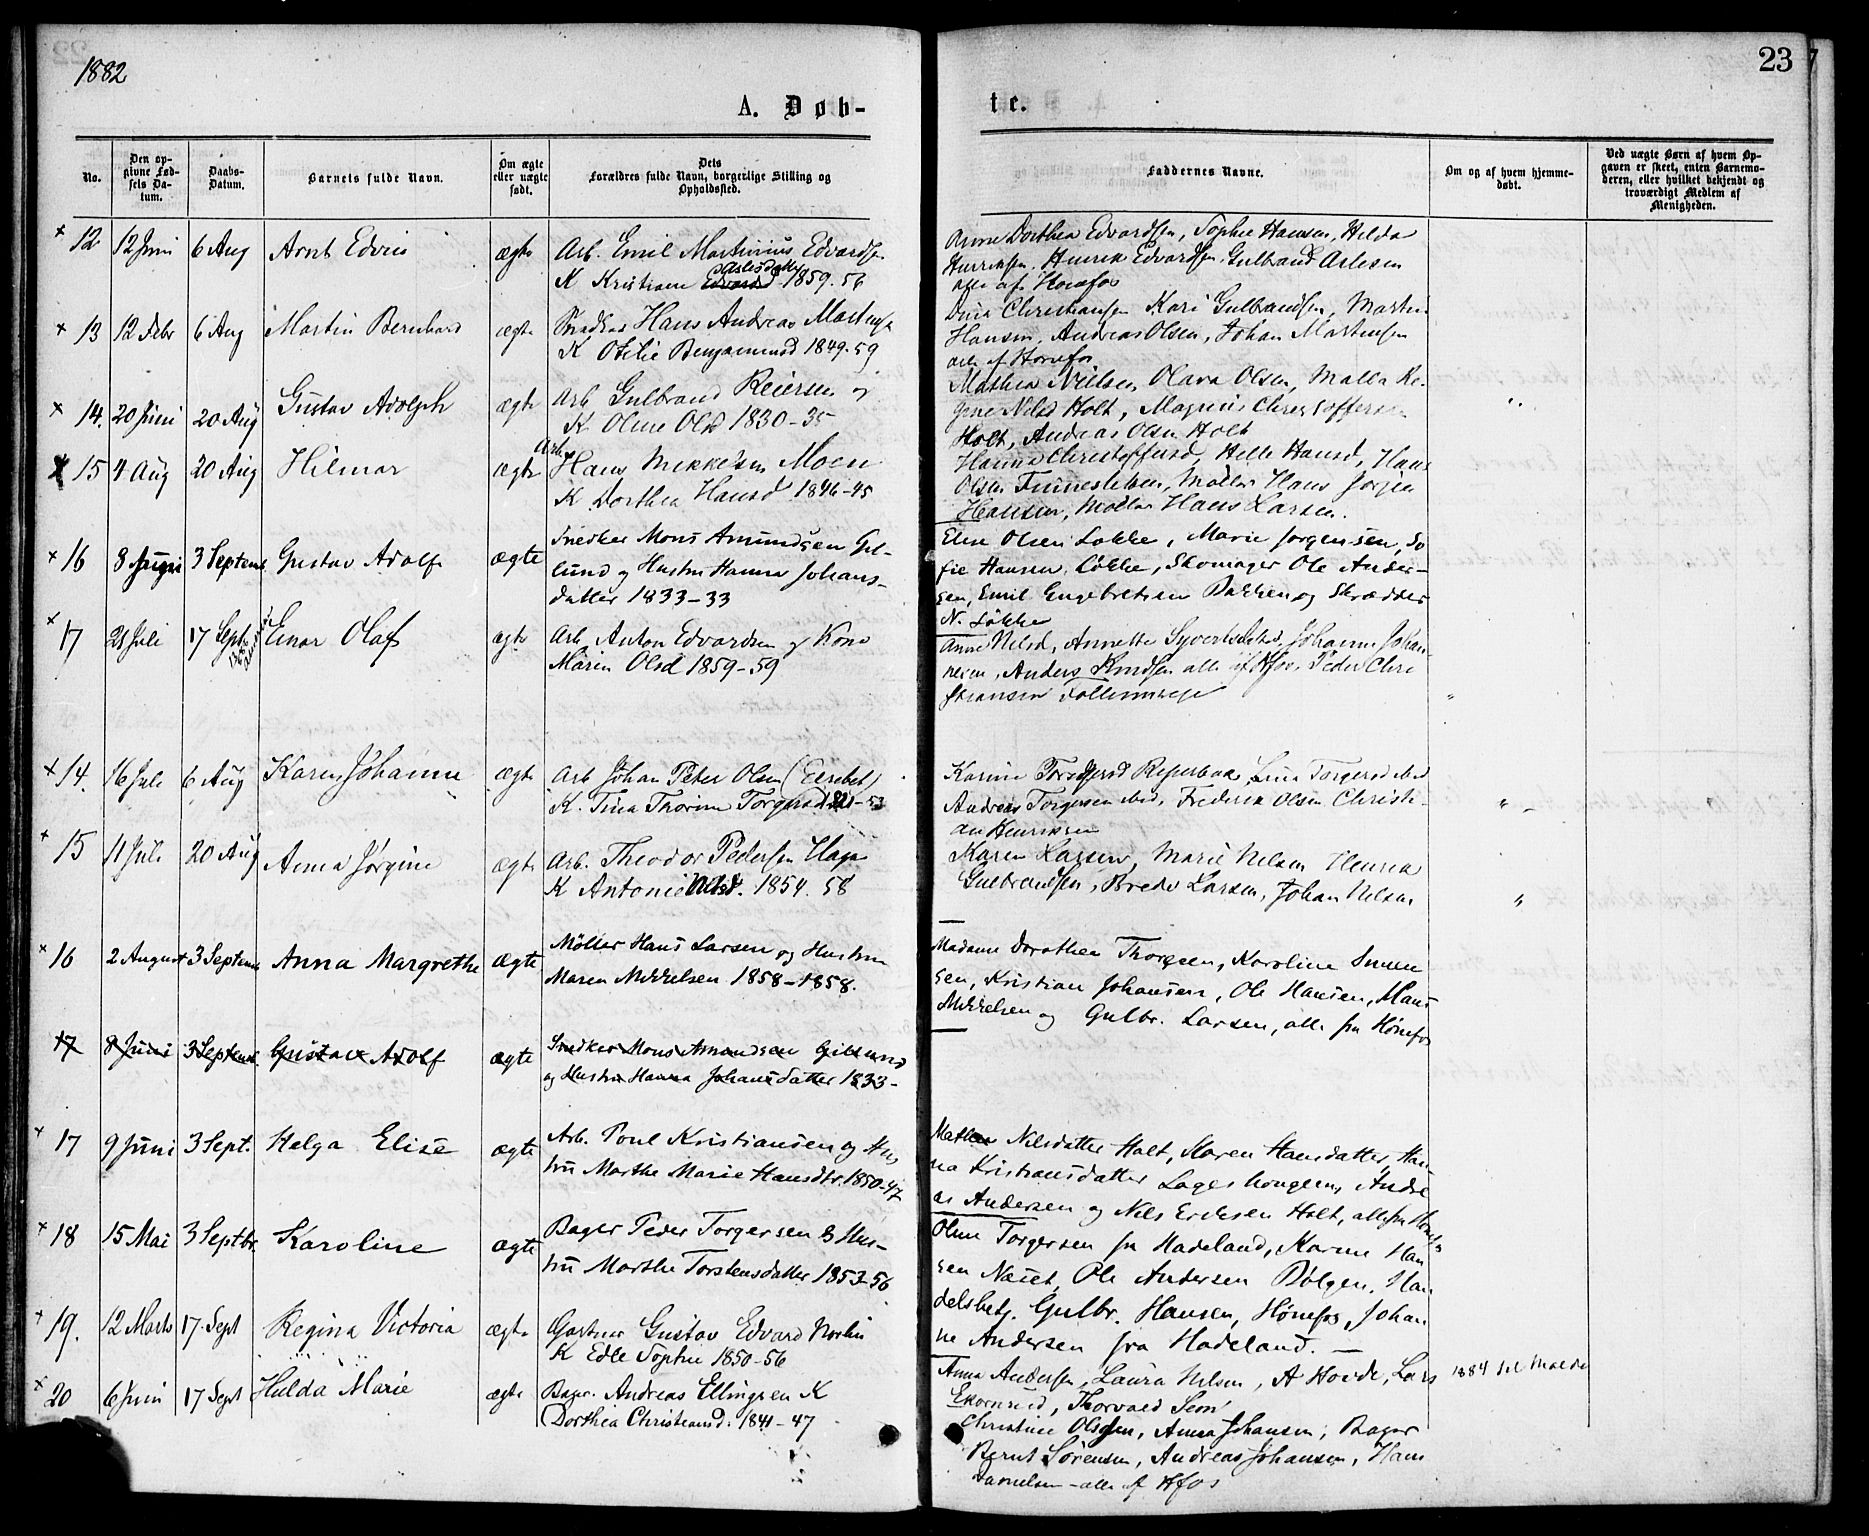 1882
23
A. Døb-
te.
No.
Den op-
givne Fød-
sels Da-
tum.
Daabs-
Datum.
Barnets fulde Navn.
Om ægte
eller uægte
født.
Dets
Forældres fulde Navn, borgerlige Stilling og
Opholdssted.
Faddernes Navne.
Om og af hvem hjemme-
døbt.
Ved uægte Børn af hvem Op-
gaven er skeet, enten Barnemo-
deren, eller hvilket bekjendt og
troværdigt Medlem af
Menigheden.
× 12 12 Juni 6 Aug Arnt Edvin ægte Arb. Emil Martinius Edvardsen
K Kristiane Aslesdatter 1859. 56
Anne Dorthea Edvardsen, Sophie Hansen, Hilda
Henriksen, Henrik Edvardsen, Gulbrand Aslesen
alle af Hønefos
× 13 12 Febr 6 Aug Martin Bernhard ægte Snedker Hans Andreas Martinsen
K Otelie Benjaminsd 1849. 59
Christiansen Kari Gulbrandsen, Martin
Hansen, Andreas Olsen, Johan Martinsen
alle af Hønefos
× 14. 20 Juni 20 Aug Gustav Adolph ægte Arb Gulbrand Reiersen og
K. Oline Olsd 1830-35
Mathea Nielsen, Olava Olsen,
Nilsd Holt, Magnus Christoffersen
Holt, Andreas Olsen Holt
× 15 4 Aug 20 Aug Hilmar ægte Arb. Hans Mikkelsen Moen
K Dorthea Hansd 1846-45
Hanna Christoffersd, Helle Hansd, Hans
Olsen, Møller Hans Jørgen
Hansen, Møller Hans Larsen.
× 16 8 Juni 3 Septemb Gustav Adolf ægte Snedker Mons Amundsen Gil-
lund og Hustru Hanna Johans-
datter 1833-33
Elise Olsen Løkke, Marie Jørgensen, So
fie Hansen Løkke, Skomager Ole Ander-
sen, Emil Engebretsen Bakken og Skrædder
N. Løkke
× 17 21 Juli 17 Sept Einar Olaf ægte Arb. Anton Edvardsen og Kone
Maren Olsd 1859-59
Anne Nilsd, Annette Syvertsdatter, Johanne Johan-
nesen, Anders Knudsen alle af Hfos, Peder Chri
stiansen Follumveje "
× 14. 16 Juli 6 Aug Karen Johanne ægte Arb Johan Peter Olsen
K. Tina Thorine Torgersd
Karine Torgersd, Lina Torgersd
Andreas Torgersen, Frederik Olsen Christi-
an Henriksen " -
× 15 11 Juli 20 Aug Anna Jørgine ægte Arb. Theodor Pedersen Hage
K Antonie Nilsd. 1854. 58
Karen Larsen, Marie Nilsen Henrik
Gulbrandsen, Brede Larsen, Johan Nilsen "
× 16 2 August 3 Septemb Anna Margrethe ægte Møller Hans Larsen og Hustru
Maren Mikkelsen 1858-1858.
Madame Dorothea Thorsen, Karoline
sen, Kristian Johansen, Ole Hansen, Hans
Mikkelsen og Gulbr. Larsen, alle fra Hønefos
17 8 Juni 3 Septemb Gustav Adolf ægte Snedker Mons Amundsen Gillund
og Hustru Hanna Johansdatter 1833-
× 17 9 Juni 3 Sept. Helga Elise ægte Arb. Poul Kristiansen og Hus
tru Marthe Marie Hansdtr. 1850-47
Nilsdatter Holt, Maren Hansdatter, Han-
na Kristiansdatter Lageshougen, Andre
as Andersen og Nils Eriksen Holt, alle fra Hønefos
× 18 15 Mai 3 Septbr. Karoline ægte Bager Peder Torgersen & Hus-
tru Marthe Torstensdatter 1853-56
Oline Torgersen fra Hadeland, Karine Han
sen Næset, Ole Andersen Bølgen, Han
delsbetj. Gulbr. Hansen, Hønefos, Johan
ne Andersen fra Hadeland. —
× 19. 12 Marts 17. Sept Regina Victoria ægte Gartner Gustav Edvard Norlin
K Edle Sophie 1850-56
Anna Andersen, Laura Nilsen, A Hovde, Lars
Ekornrud, Thorvald Sem
1884 til Molde
× 20 6 Juni 17 Sept Hulda Marie ægte Bager. Andreas Ellingsen K
Dorthea Christiansd. 1841-47
Christine Olsen, Anna Johansen, Bager
Bernt Sørensen, Andreas Johansen, Hans
Danielsen - alle af Hfos